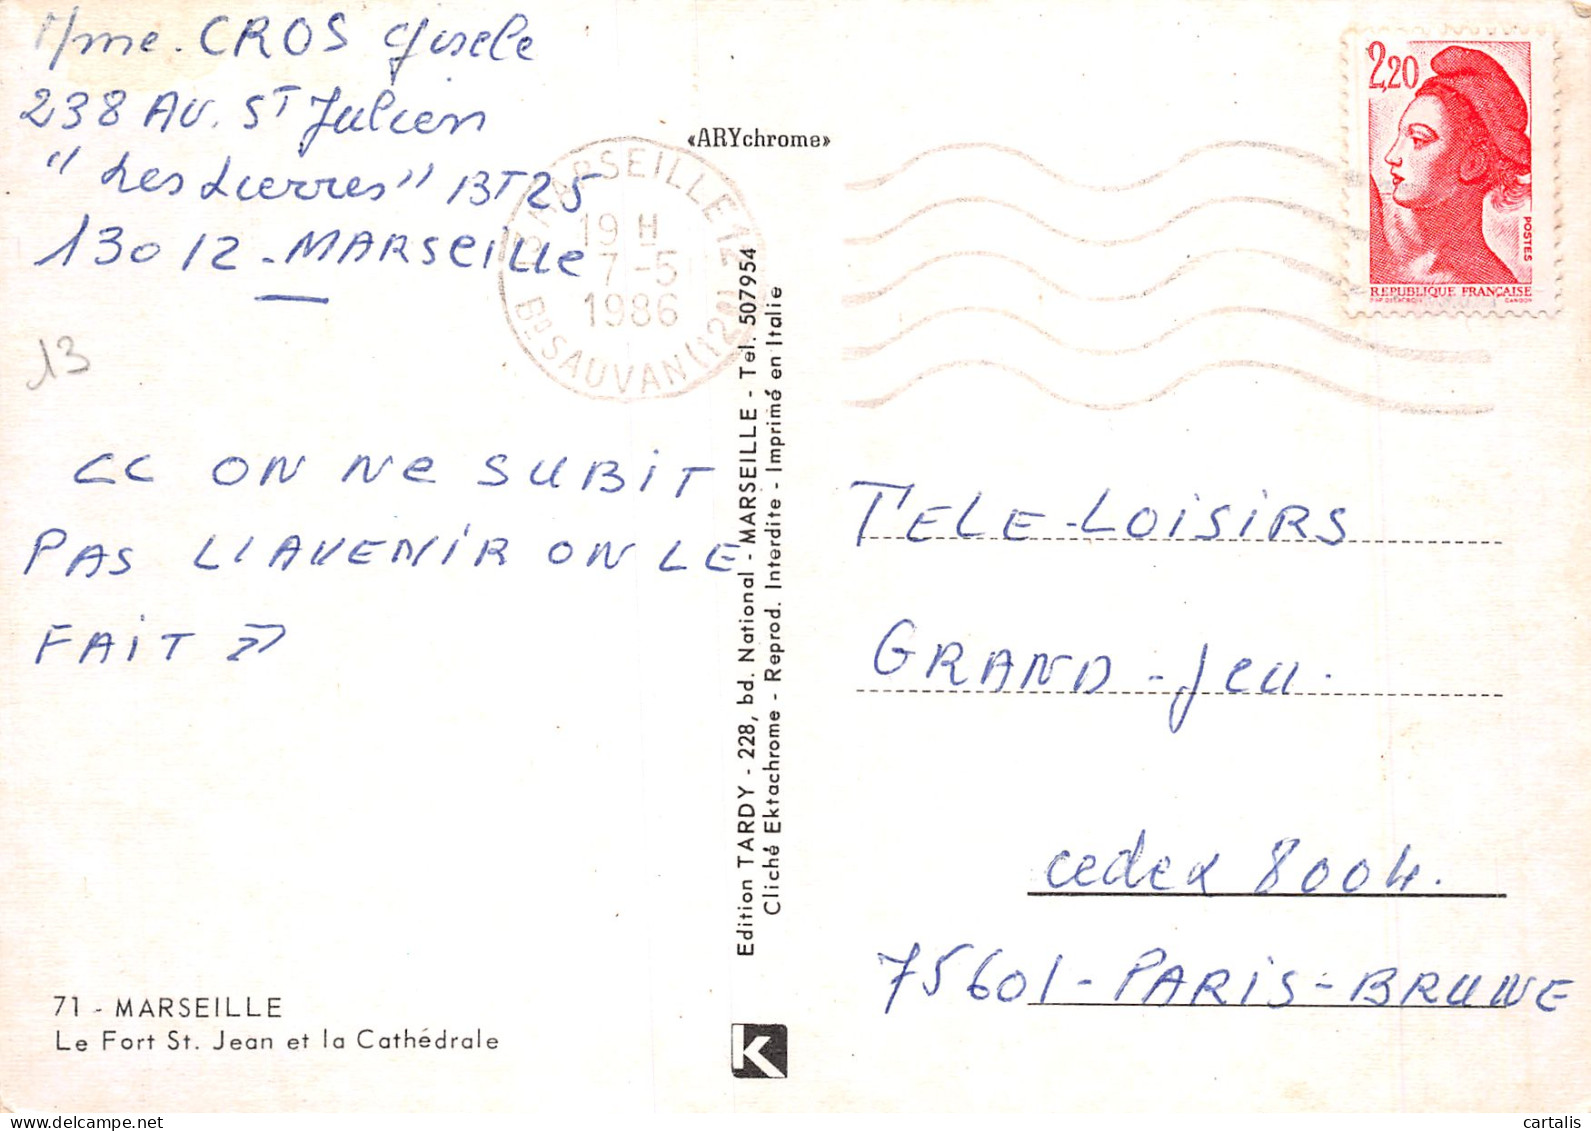 Mme. CROS Gisele
238 AV. ST Julien
"Les Lierres" BT25
13012 - MARSEILLE
13
<< ON NE SUBIT
PAS L'AVENIR ON LE
FAIT >>
71 - MARSEILLE
Le Fort St. Jean et la Cathédrale
«ARYchrome»
13 MARSEILLE 12
19 H
7-5
1986
BD SAUVAN (12E)
Edition TARDY - 228, bd. National - MARSEILLE - Tel. 507954
Cliché Ektachrome - Reprod. Interdite - Imprimé en Italie
K
2,20
POSTES
REPUBLIQUE FRANÇAISE
GANDON
TELE-LOISIRS
GRAND-Jeu.
cedex 8004.
75601-PARIS-BRUNE
cartalis.com